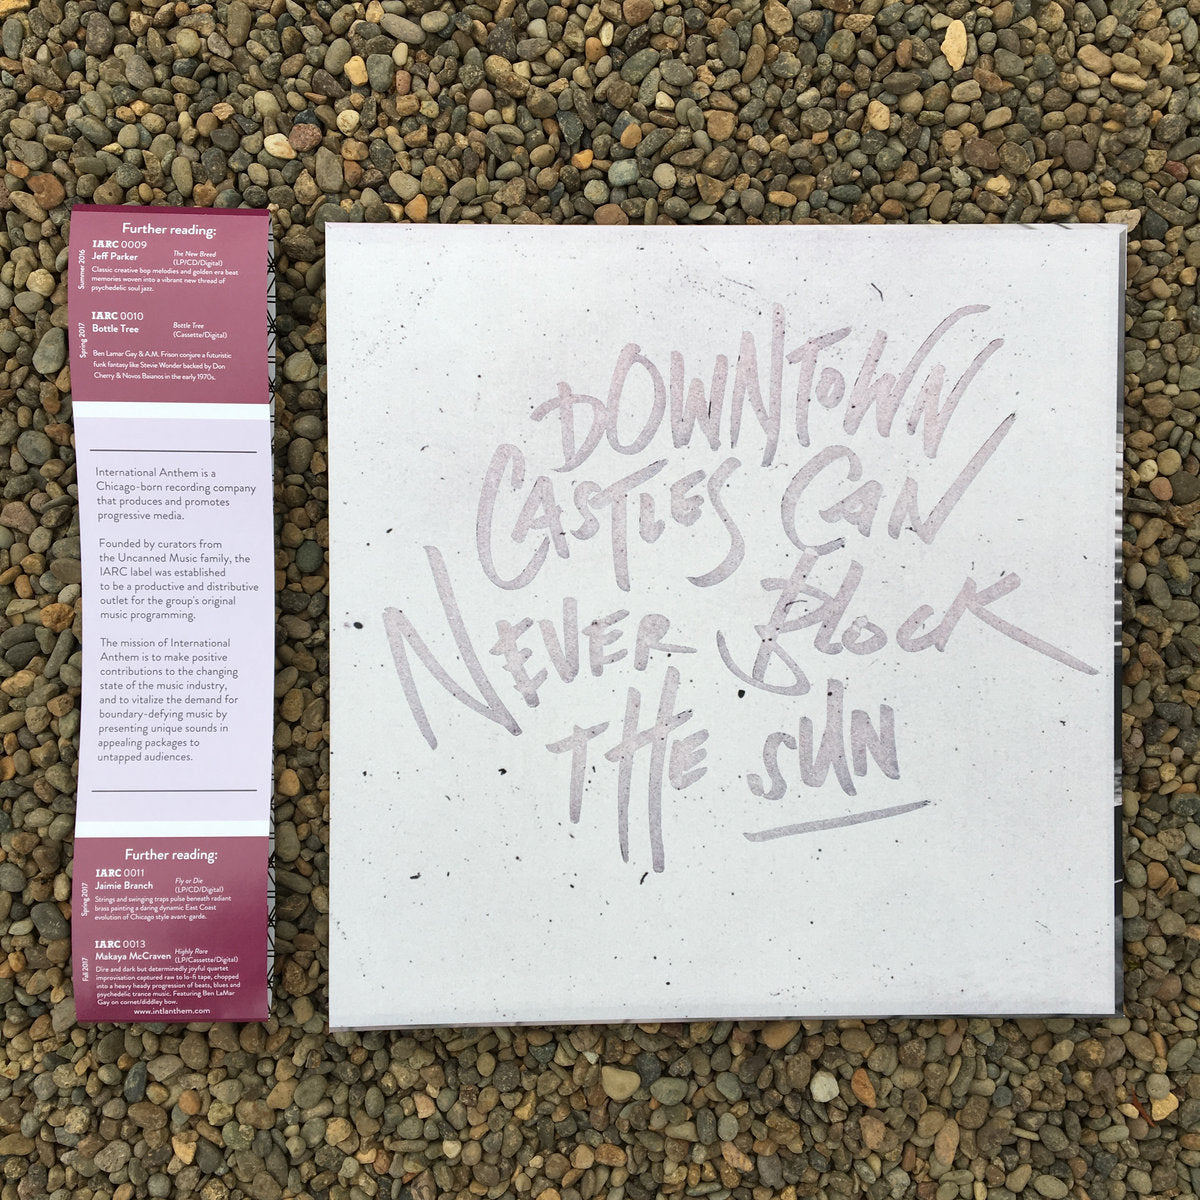 Further reading:
Summer 2016
IARC 0009
Jeff Parker
The New Breed
(LP/CD/Digital)
Classic creative bop melodies and golden era beat
memories woven into a vibrant new thread of
psychedelic soul jazz.
Spring 2017
IARC 0010
Bottle Tree
Bottle Tree
(Cassette/Digital)
Ben Lamar Gay & A.M. Frison conjure a futuristic
funk fantasy like Stevie Wonder backed by Don
Cherry & Novos Baianos in the early 1970s.
International Anthem is a
Chicago-born recording company
that produces and promotes
progressive media.
Founded by curators from
the Uncanned Music family, the
IARC label was established
to be a productive and distributive
outlet for the group's original
music programming.
The mission of International
Anthem is to make positive
contributions to the changing
state of the music industry,
and to vitalize the demand for
boundary-defying music by
presenting unique sounds in
appealing packages to
untapped audiences.
Further reading:
Spring 2017
IARC 0011
Jaimie Branch
Fly or Die
(LP/CD/Digital)
Strings and swinging traps pulse beneath radiant
brass painting a daring dynamic East Coast
evolution of Chicago style avant-garde.
Fall 2017
IARC 0013
Makaya McCraven
Highly Rare
(LP/Cassette/Digital)
Dire and dark but determinedly joyful quartet
improvisation captured raw to lo-fi tape, chopped
into a heavy heady progression of beats, blues and
psychedelic trance music. Featuring Ben LaMar
Gay on cornet/diddley bow.
www.intlanthem.com
DOWNTOWN
CASTLES CAN
NEVER BLOCK
THE SUN